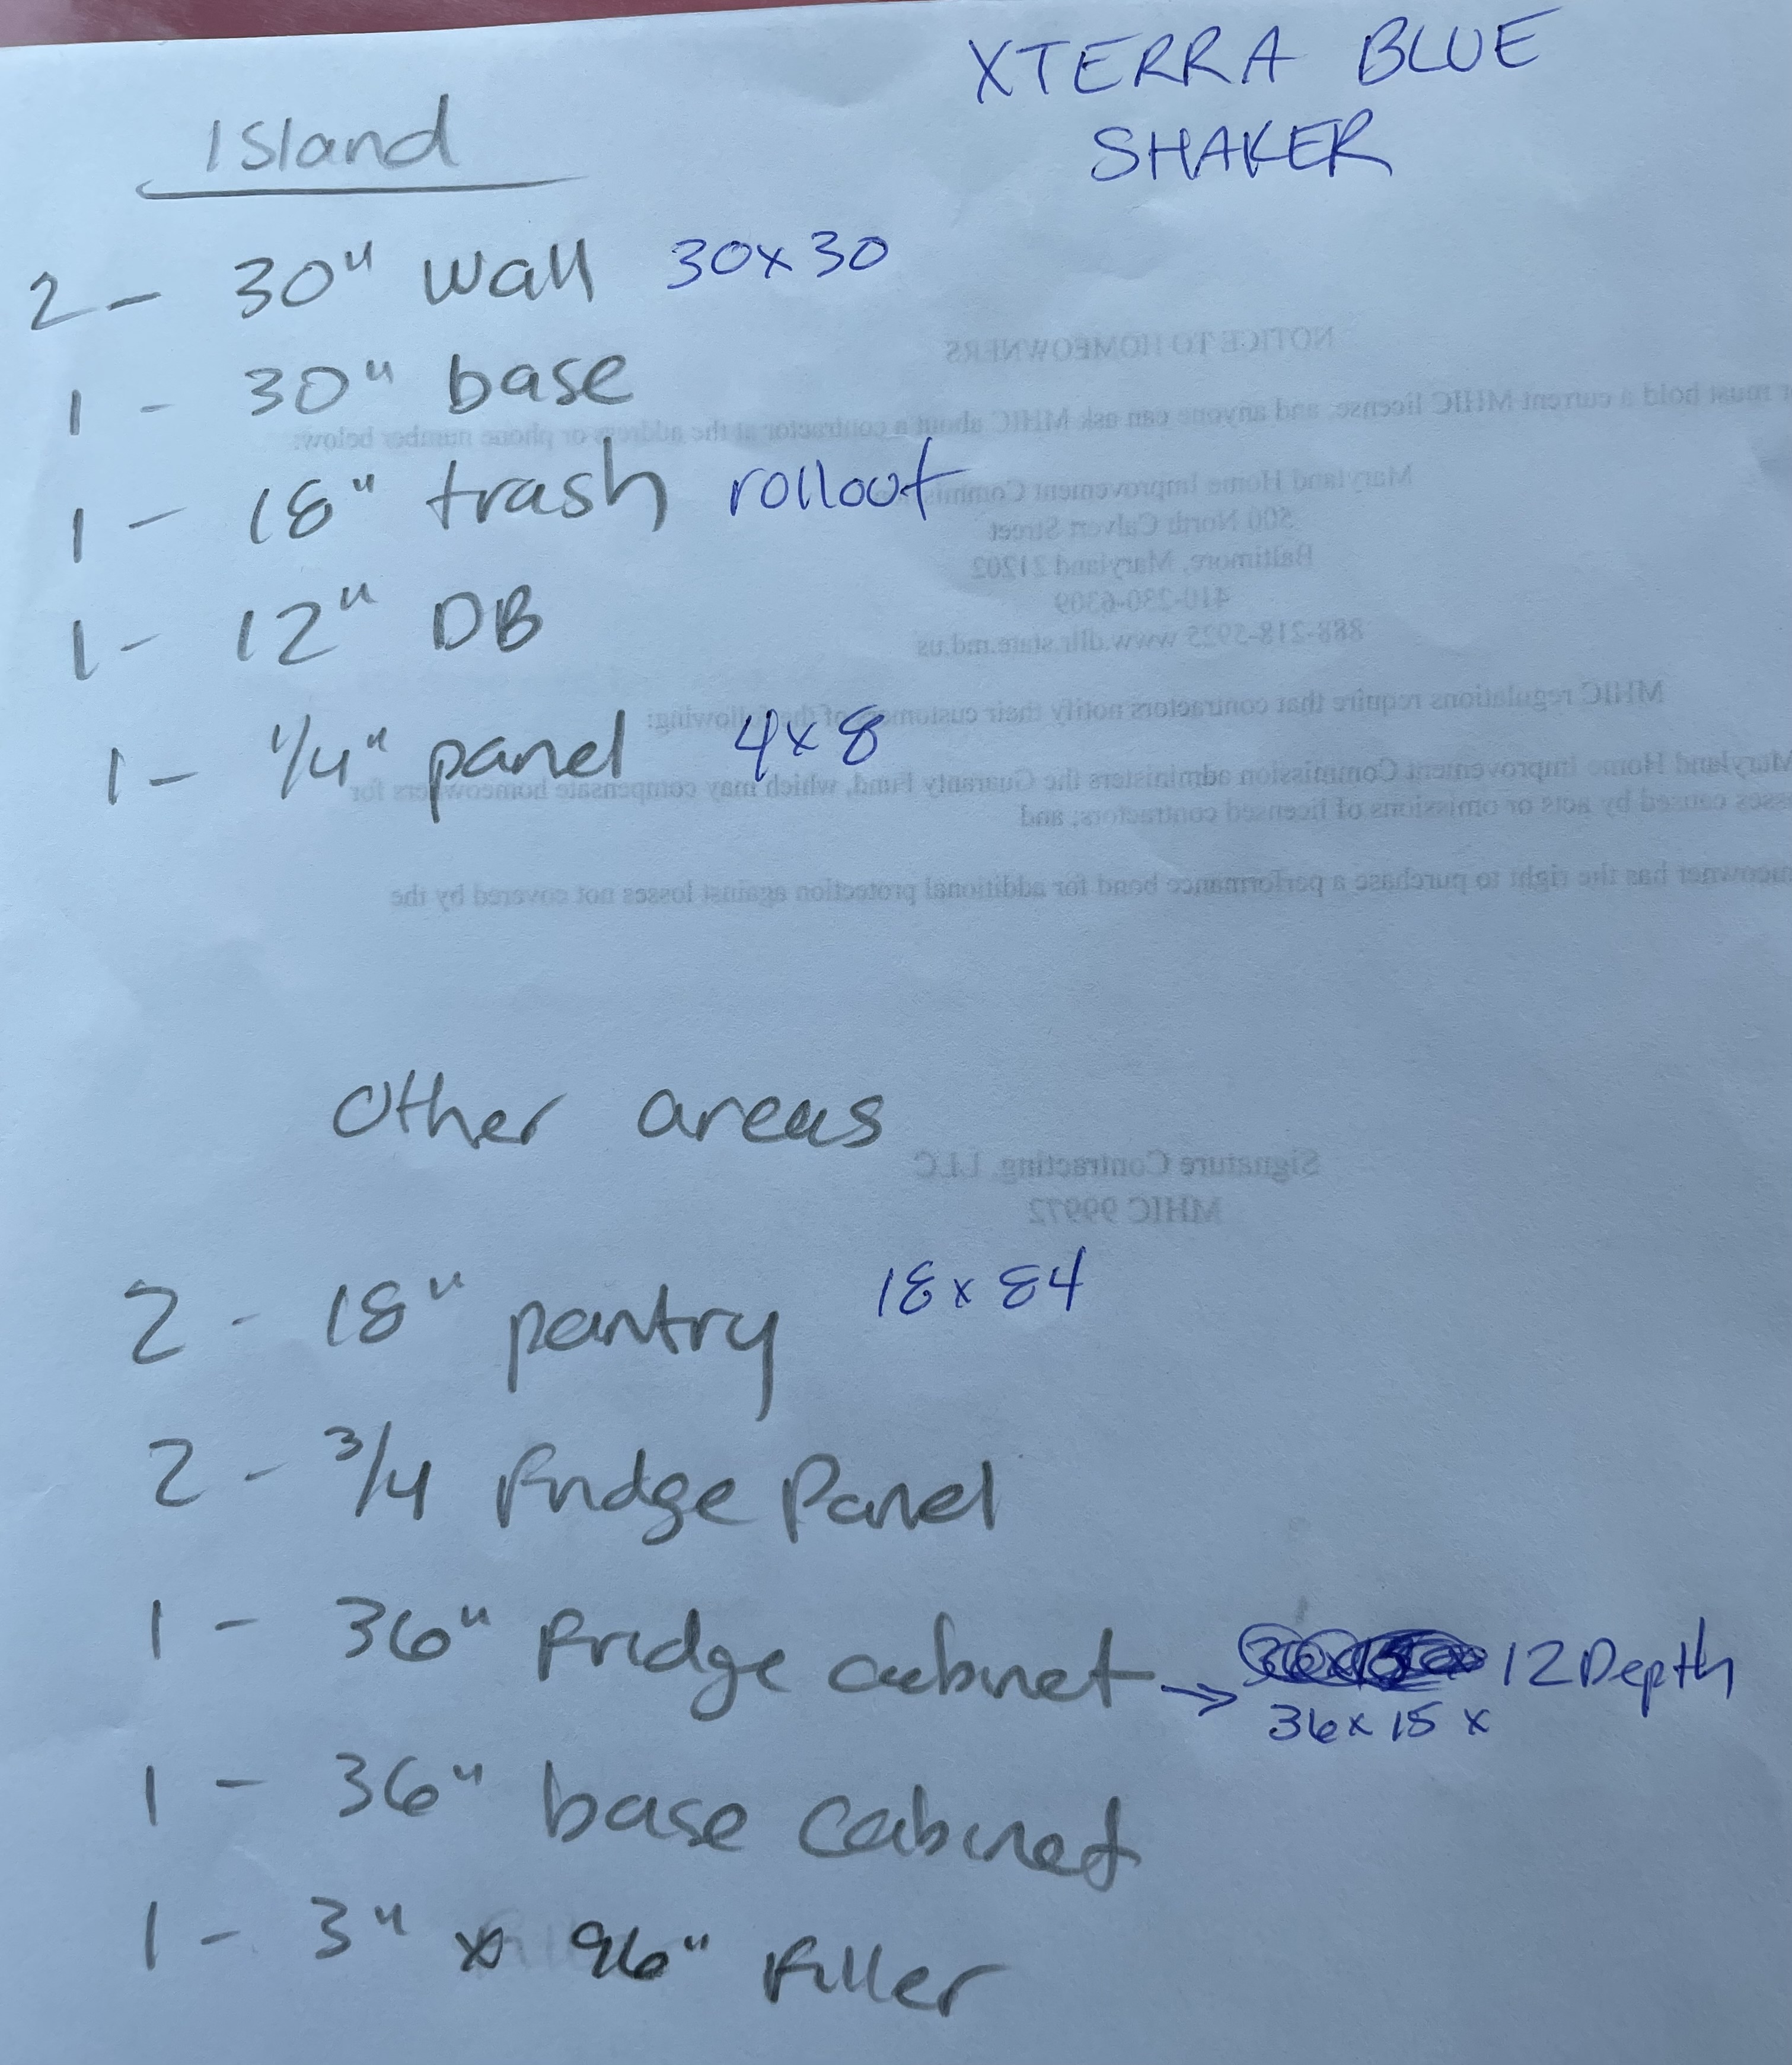 XTERRA BLUE
SHAKER
Island
2 - 30" wall 30x30
1 - 30" base
1 - 18" trash rollout
1 - 12" DB
1 - 1/4" panel 4x8
NOTICE TO HOMEOWNERS
must hold a current MHIC license, and anyone can ask MHIC about a contractor at the address or phone number below:
Maryland Home Improvement
500 North Calvert Street
Baltimore, Maryland 21202
410-230-6309
www.dllr.state.md.us
MHIC regulations require that contractors notify their customers of the following:
Maryland Home Improvement Commission administers the Guaranty Fund, which may compensate homeowners for
caused by acts or omissions of licensed contractors; and
has the right to purchase a performance bond for additional protection against losses not covered by the
Other areas
Signature Contracting, LLC
MHIC 99972
2 - 18" pantry 18x84
2 - 3/4 Fridge Panel
1 - 36" Fridge cabinet → 12 Depth
36x15x
1 - 36" base cabinet
1 - 3" x 96" Filler